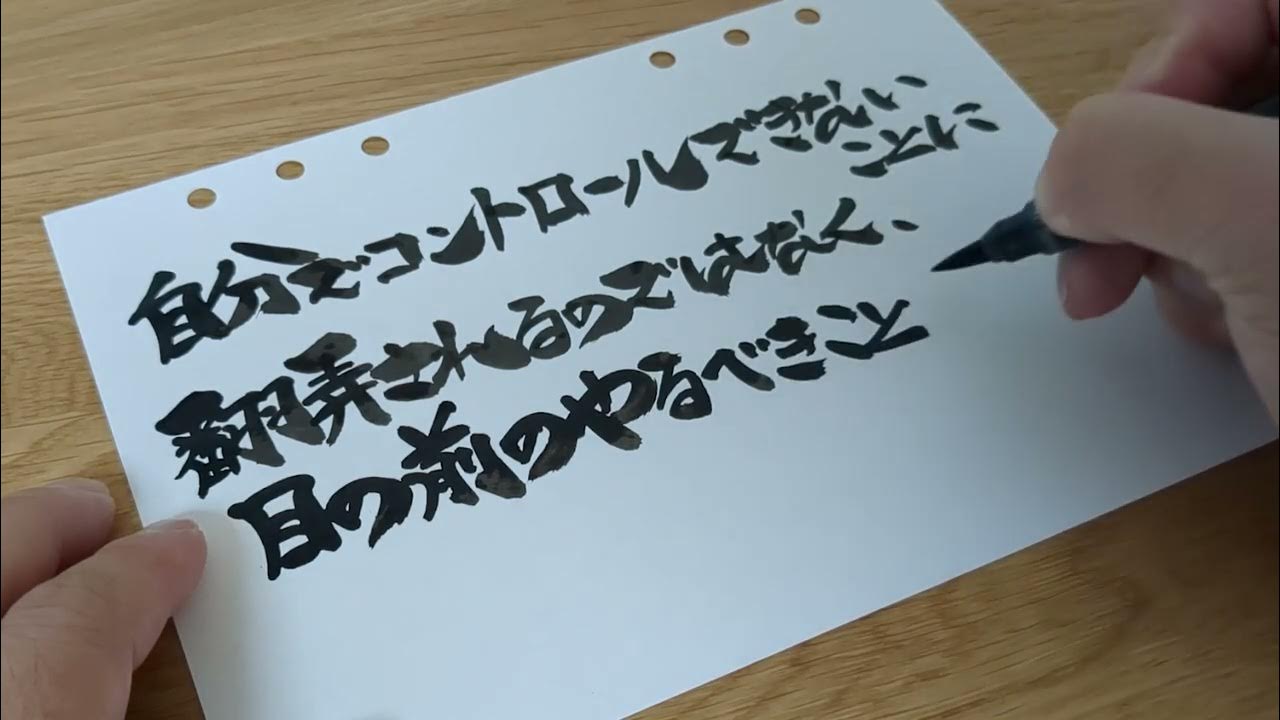 自分でコントロールできない
ことに
翻弄されるのではなく、
目の前のやるべきこと